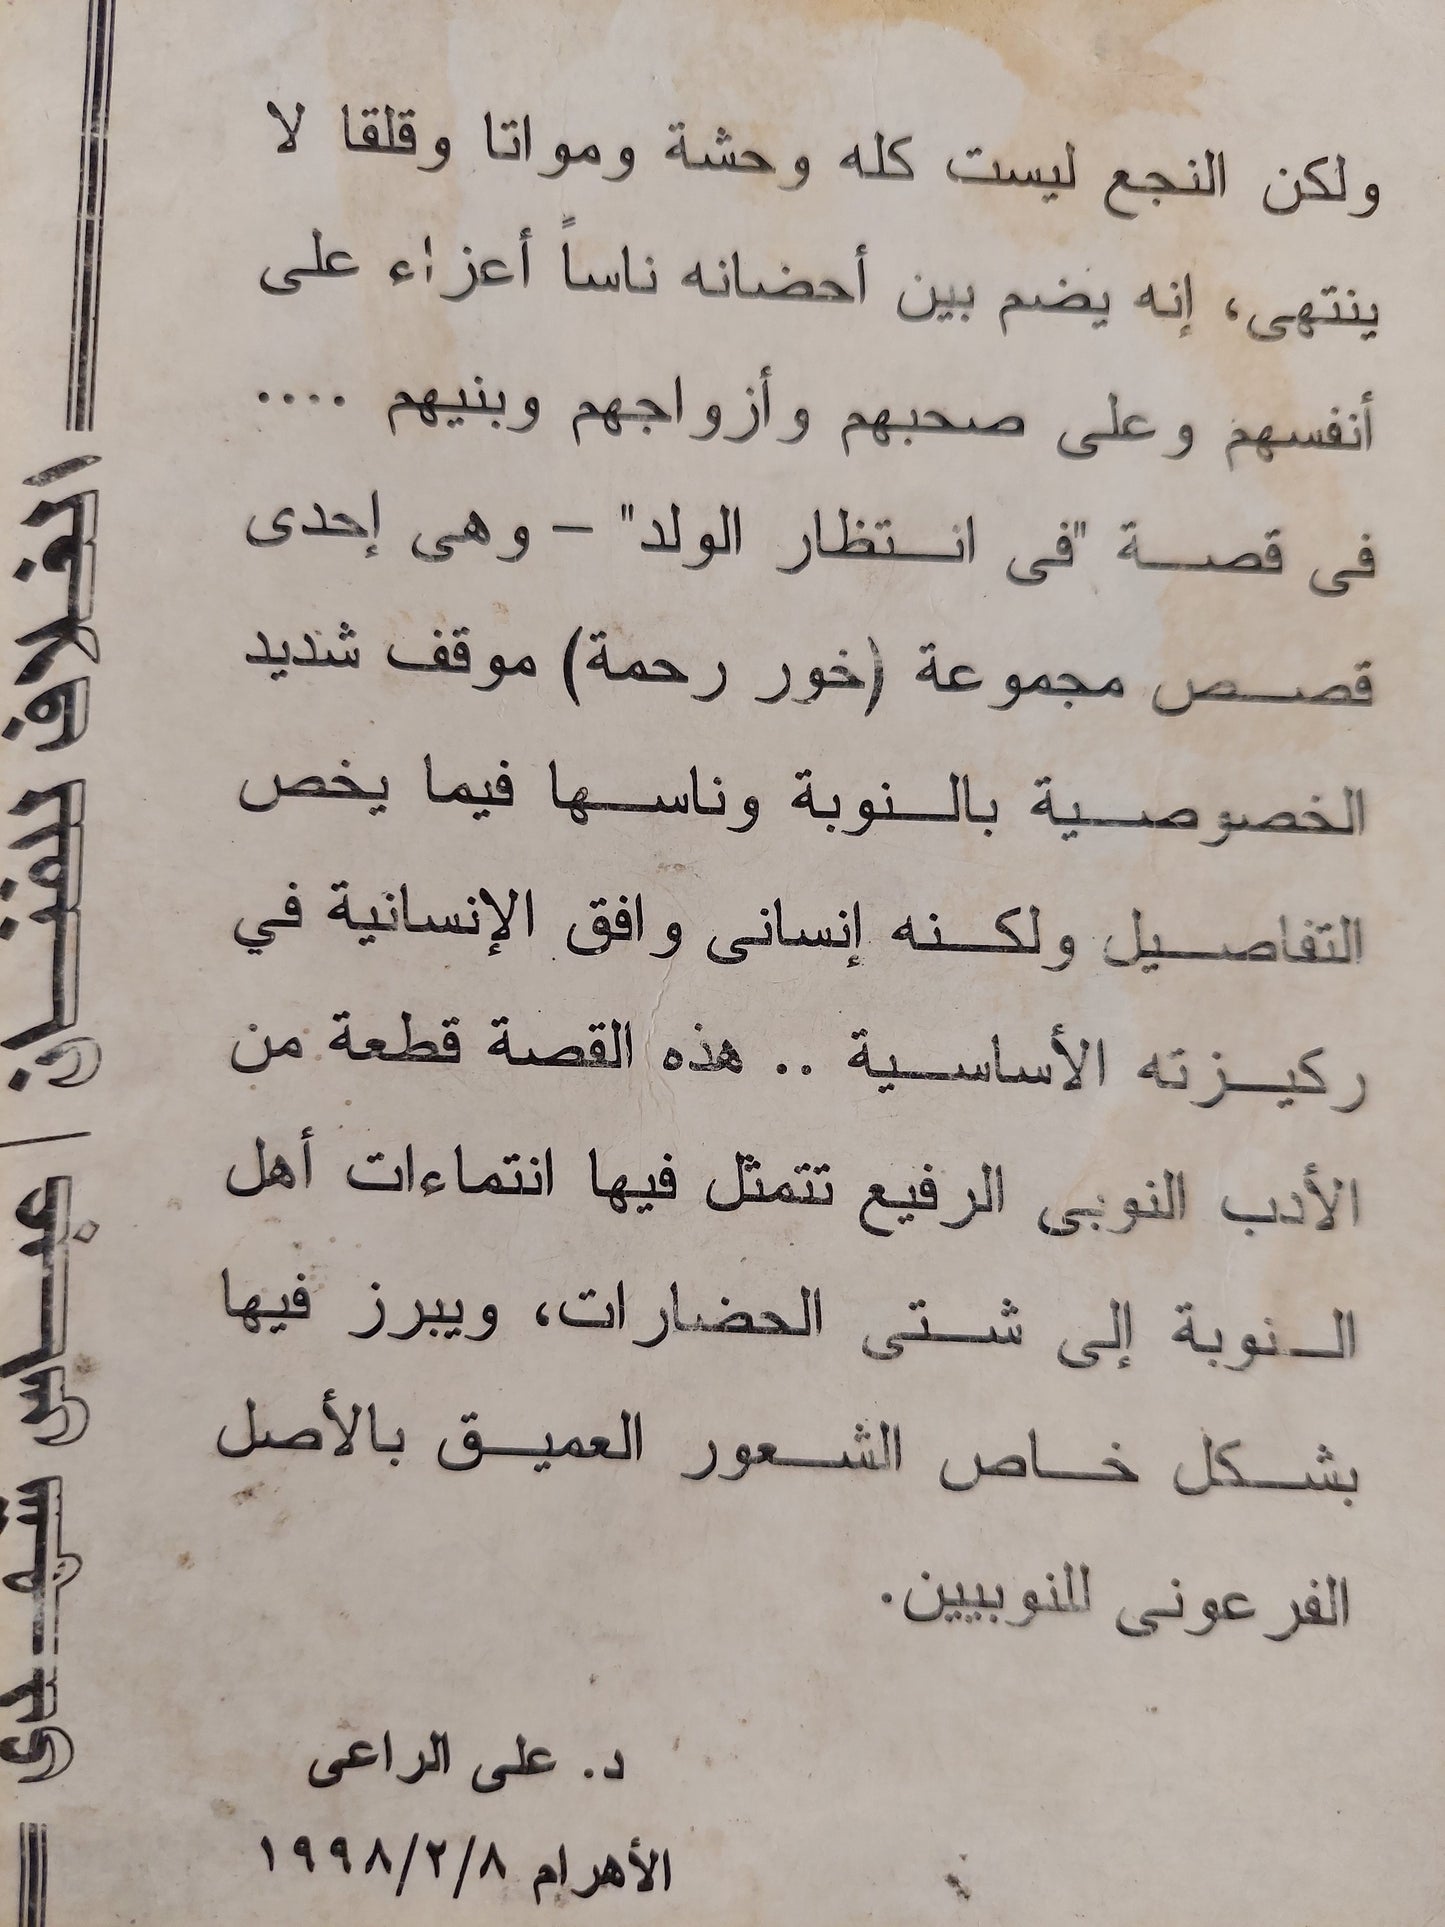 ولكن النجع ليست كله وحشة ومواتا وقلقا لا
ينتهى، إنه يضم بين أحضانه ناساً أعزاء على
أنفسهم وعلى صحبهم وأزواجهم وبنيهم ....
فى قصة "فى انتظار الولد" – وهى إحدى
قصص مجموعة (خور رحمة) موقف شديد
الخصوصية بالنوبة وناسها فيما يخص
التفاصيل ولكنه إنسانى وافق الإنسانية في
ركيزته الأساسية .. هذه القصة قطعة من
الأدب النوبى الرفيع تتمثل فيها انتماءات أهل
النوبة إلى شتى الحضارات، ويبرز فيها
بشكل خاص الشعور العميق بالأصل
الفرعونى للنوبيين.
د. على الراعى
الأهرام ١٩٩٨/٢/٨
الغلاف للفنان / عباس شهدى